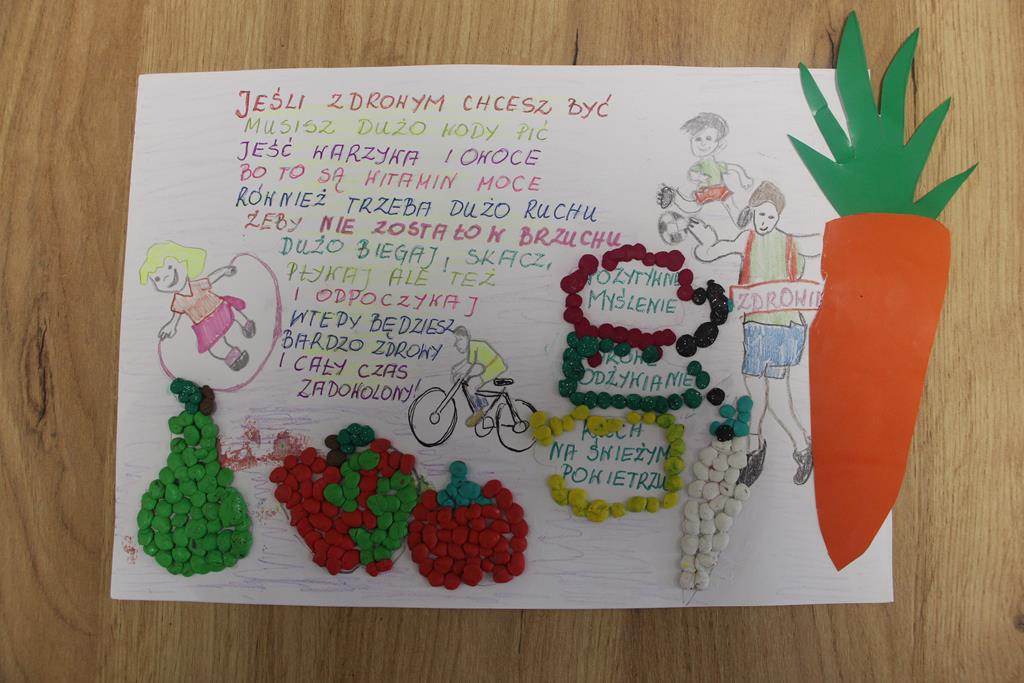 JEŚLI ZDROWYM CHCESZ BYĆ
MUSISZ DUŻO WODY PIĆ
JEŚĆ WARZYWA I OWOCE
BO TO SĄ WITAMIN MOCE
RÓWNIEŻ TRZEBA DUŻO RUCHU
ŻEBY NIE ZOSTAŁO W BRZUCHU
DUŻO BIEGAJ, SKACZ,
PŁYWAJ ALE TEŻ
I ODPOCZYWAJ
WTEDY BĘDZIESZ
BARDZO ZDROWY
I CAŁY CZAS
ZADOWOLONY!
POZYTYWNE
MYŚLENIE
ZDROWE
ODŻYWIANIE
RUCH
NA ŚWIEŻYM
POWIETRZU
ZDROWIE